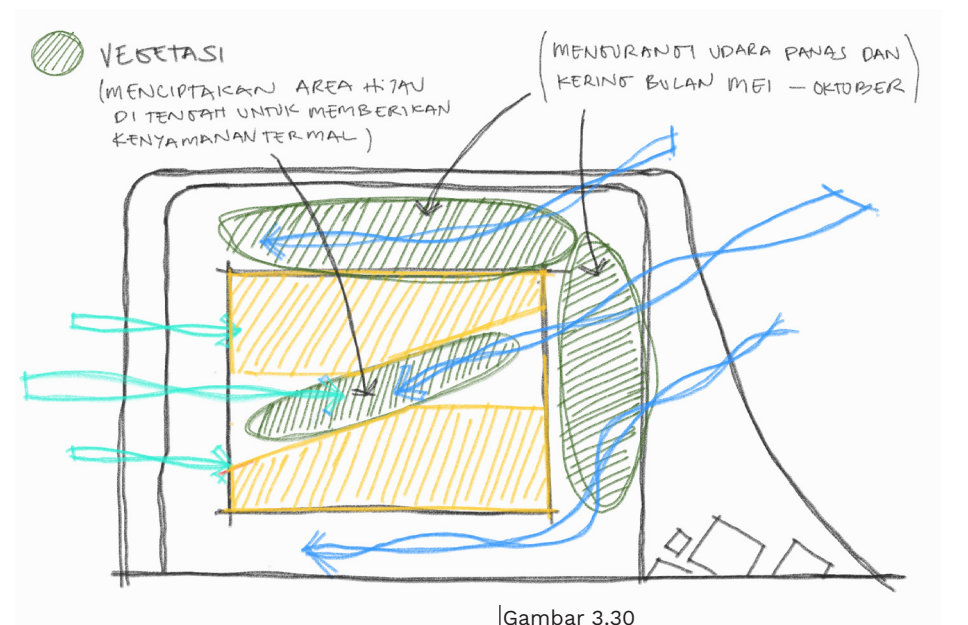 VEGETASI
(MENCIPTAKAN AREA HIJAU
DI TENGAH UNTUK MEMBERIKAN
KENYAMANAN TERMAL)
(MENGURANGI UDARA PANAS DAN
KERING BULAN MEI - OKTOBER)
Gambar 3.30